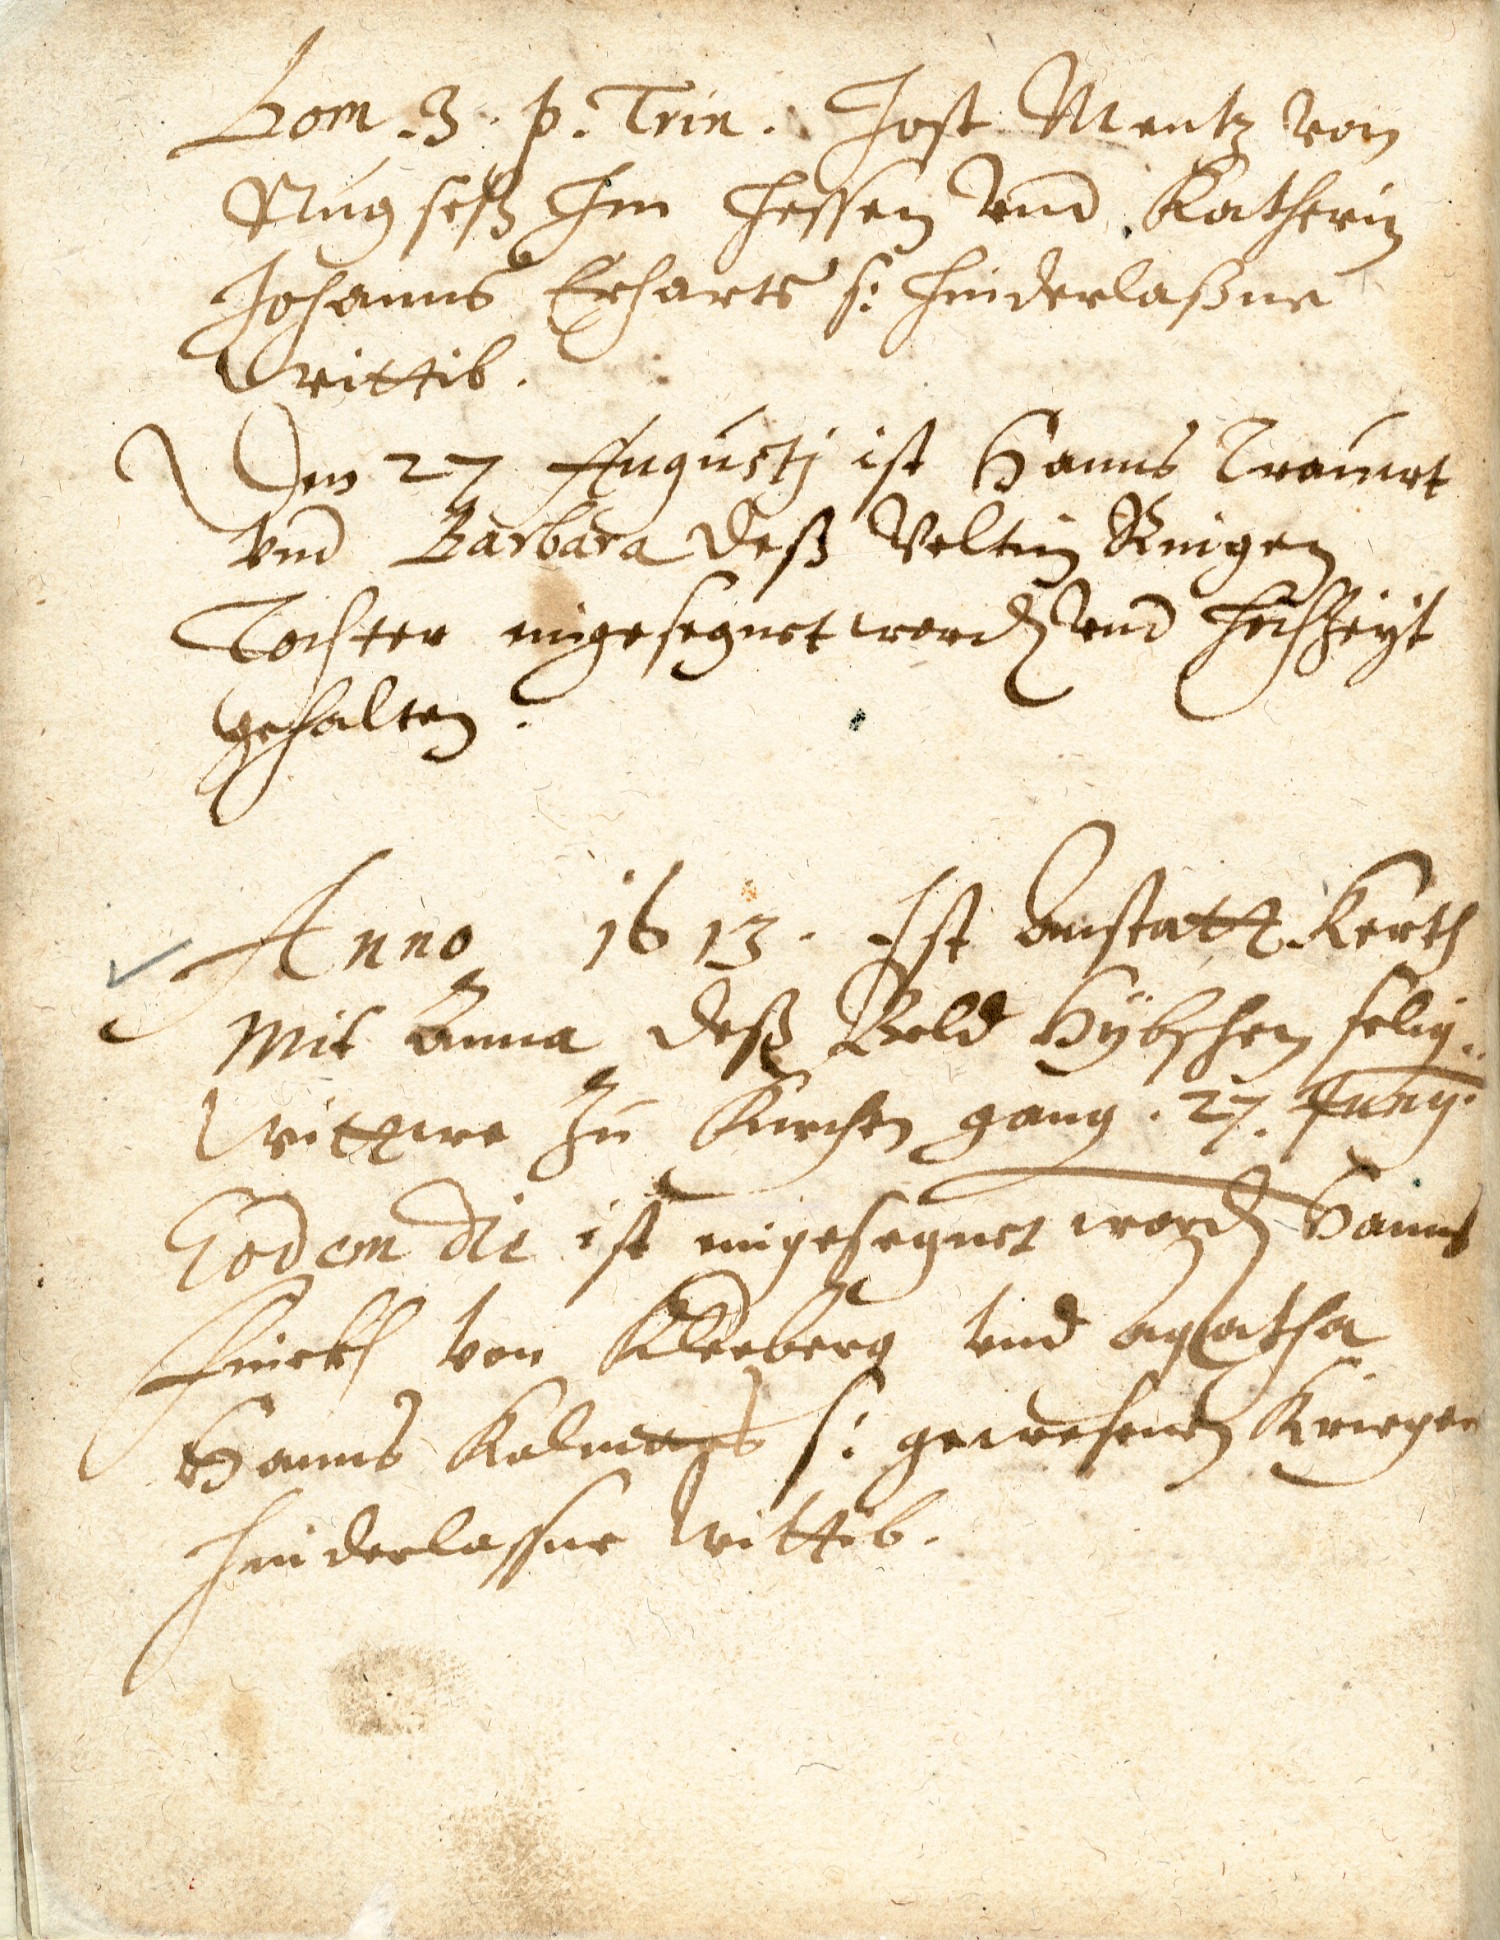 Dom. 3. p. Trin. Jost Mentz von
Im Hessen vnd Katherin
Johanns Erharts s: hinderlaßne
Wittib.
Den 27 Augustj ist Hanns Trauwet
vnd Barbara deß Veltin Ringen
Tochter eingesegnet word vnd hochZeyt
gehalten.
Anno 1613. Ist anstatt Kerth
Mit Anna deß Hÿbschen selig
Wittwe Zu Kirchen gang. 27. Juny.
Eodem die ist eingesegnet word Hanns
Finckh von Kleeberg vnd agatha
Hanns s: gewesenen Krieger
hinderlassne Wittib.